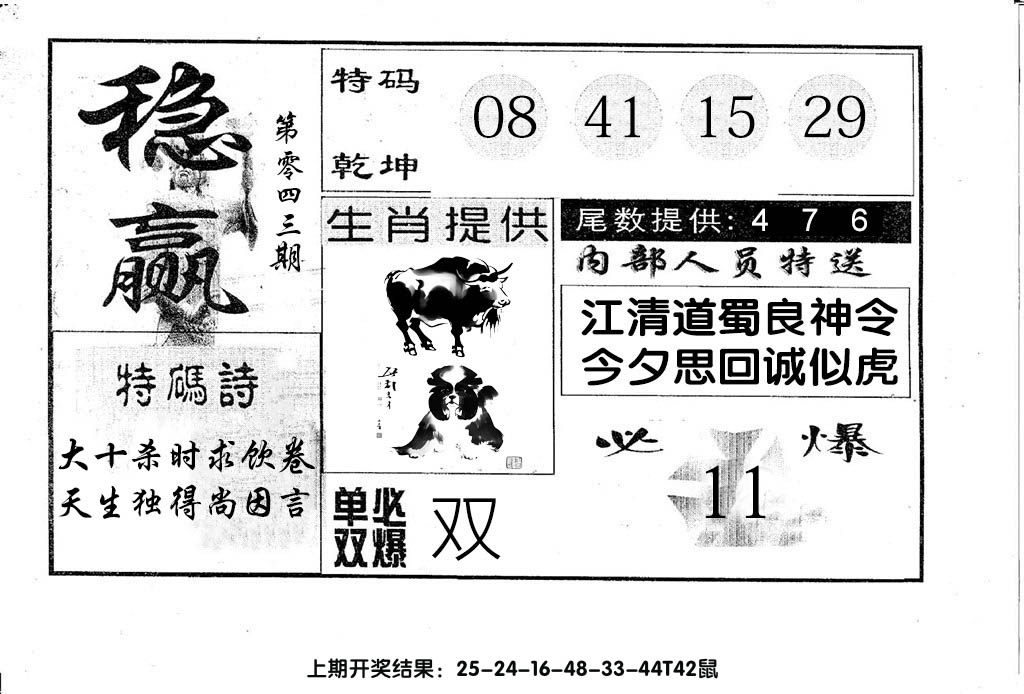 稳赢
第零四三期
特码
乾坤
08 41 15 29
生肖提供
尾数提供: 4 7 6
内部人员特送
江清道蜀良神令
今夕思回诚似虎
特碼詩
大十杀时求饮卷
天生独得尚因言
单双必爆
双
必爆
11
上期开奖结果：25-24-16-48-33-44T42鼠